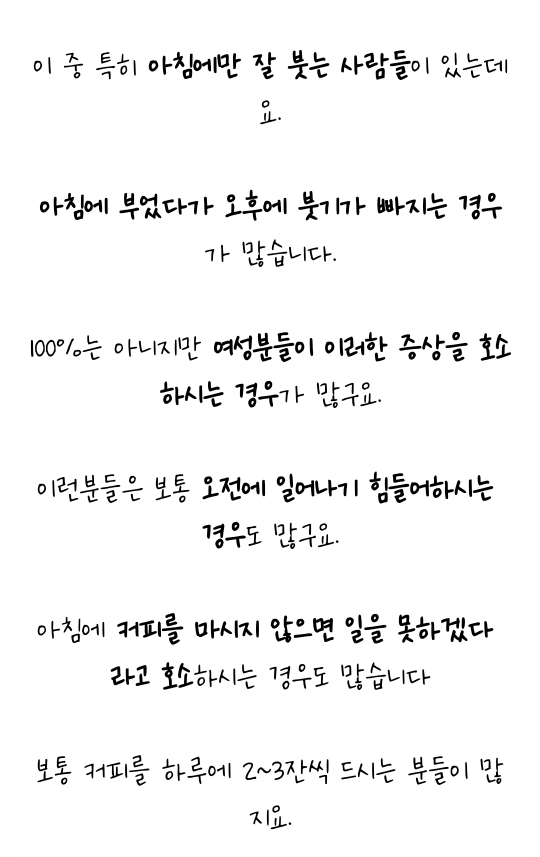 이 중 특히 아침에만 잘 붓는 사람들이 있는데
요.
아침에 부었다가 오후에 붓기가 빠지는 경우
가 많습니다.
100%는 아니지만 여성분들이 이러한 증상을 호소
하시는 경우가 많구요.
이런분들은 보통 오전에 일어나기 힘들어하시는
경우도 많구요.
아침에 커피를 마시지 않으면 일을 못하겠다
라고 호소하시는 경우도 많습니다
보통 커피를 하루에 2~3잔씩 드시는 분들이 많
지요.